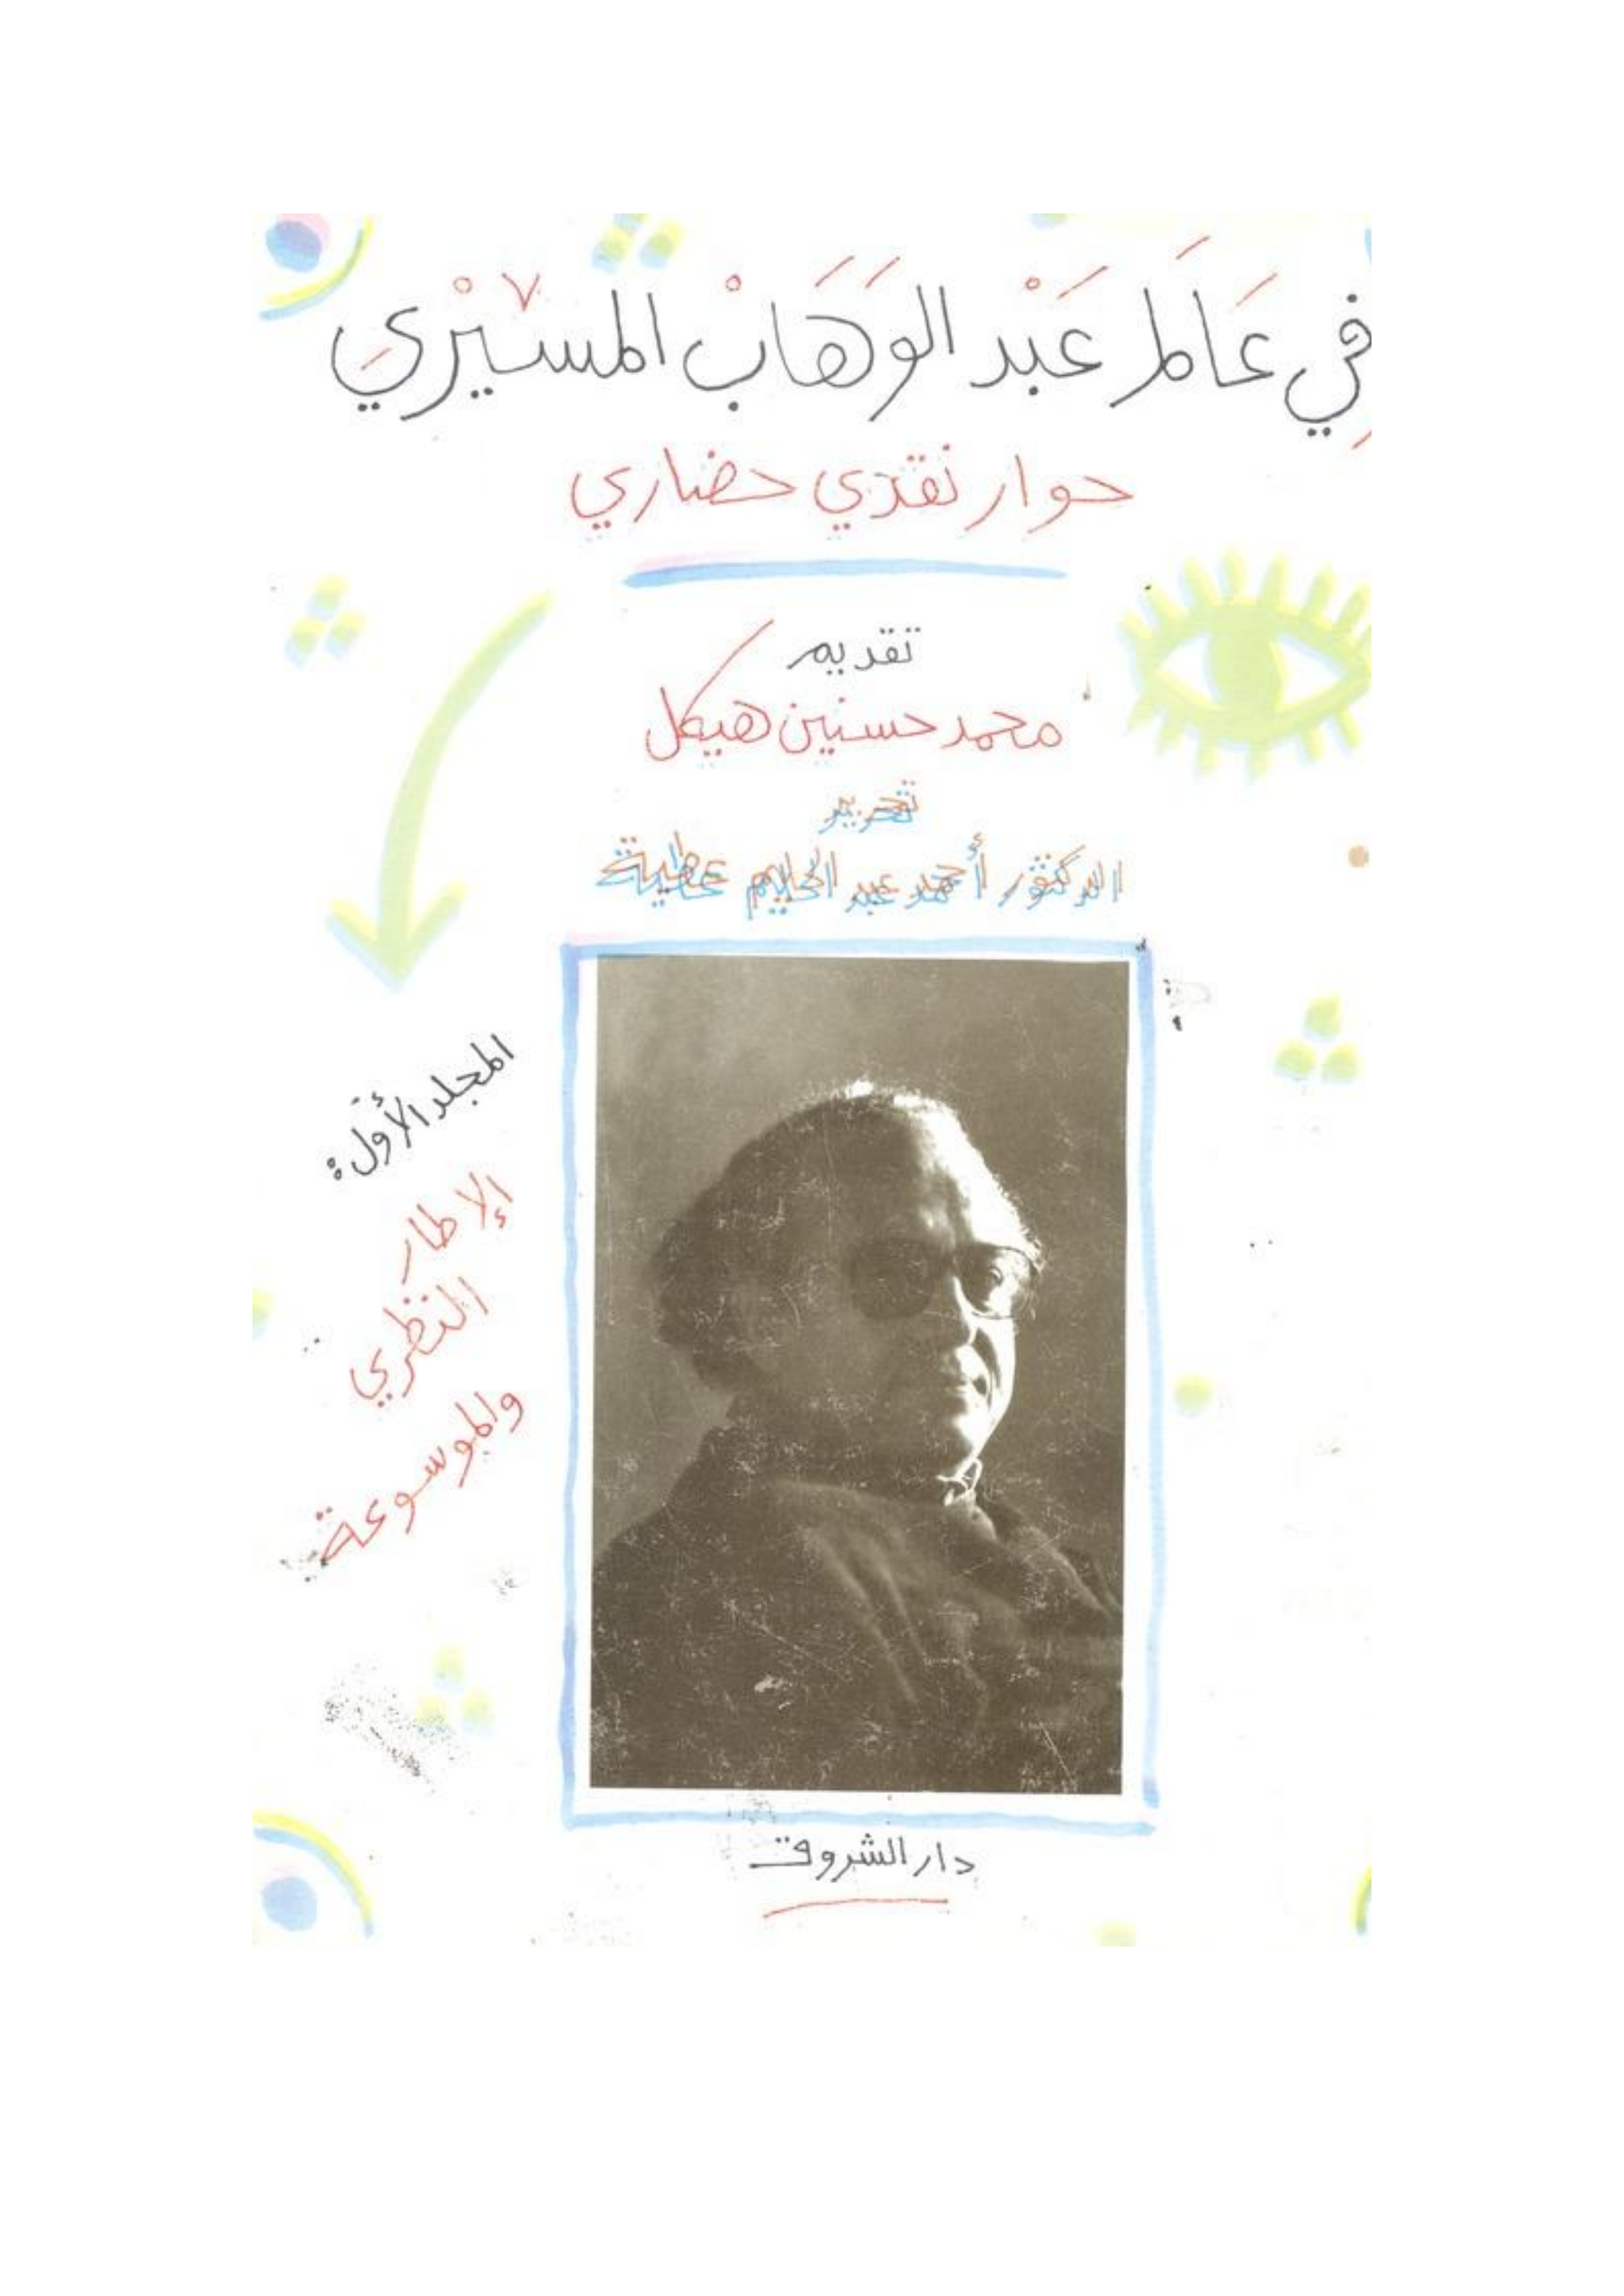 في عَالَم عَبْد الوَهَابْ المسيْري
حوار نقدي حضاري
تقديم
محمد حسنين هيكل
تحرير
الدكتور أحمد عبد الحليم عطية
المجلد الأول:
الإطار
النظري
والموسوعة
دار الشروق